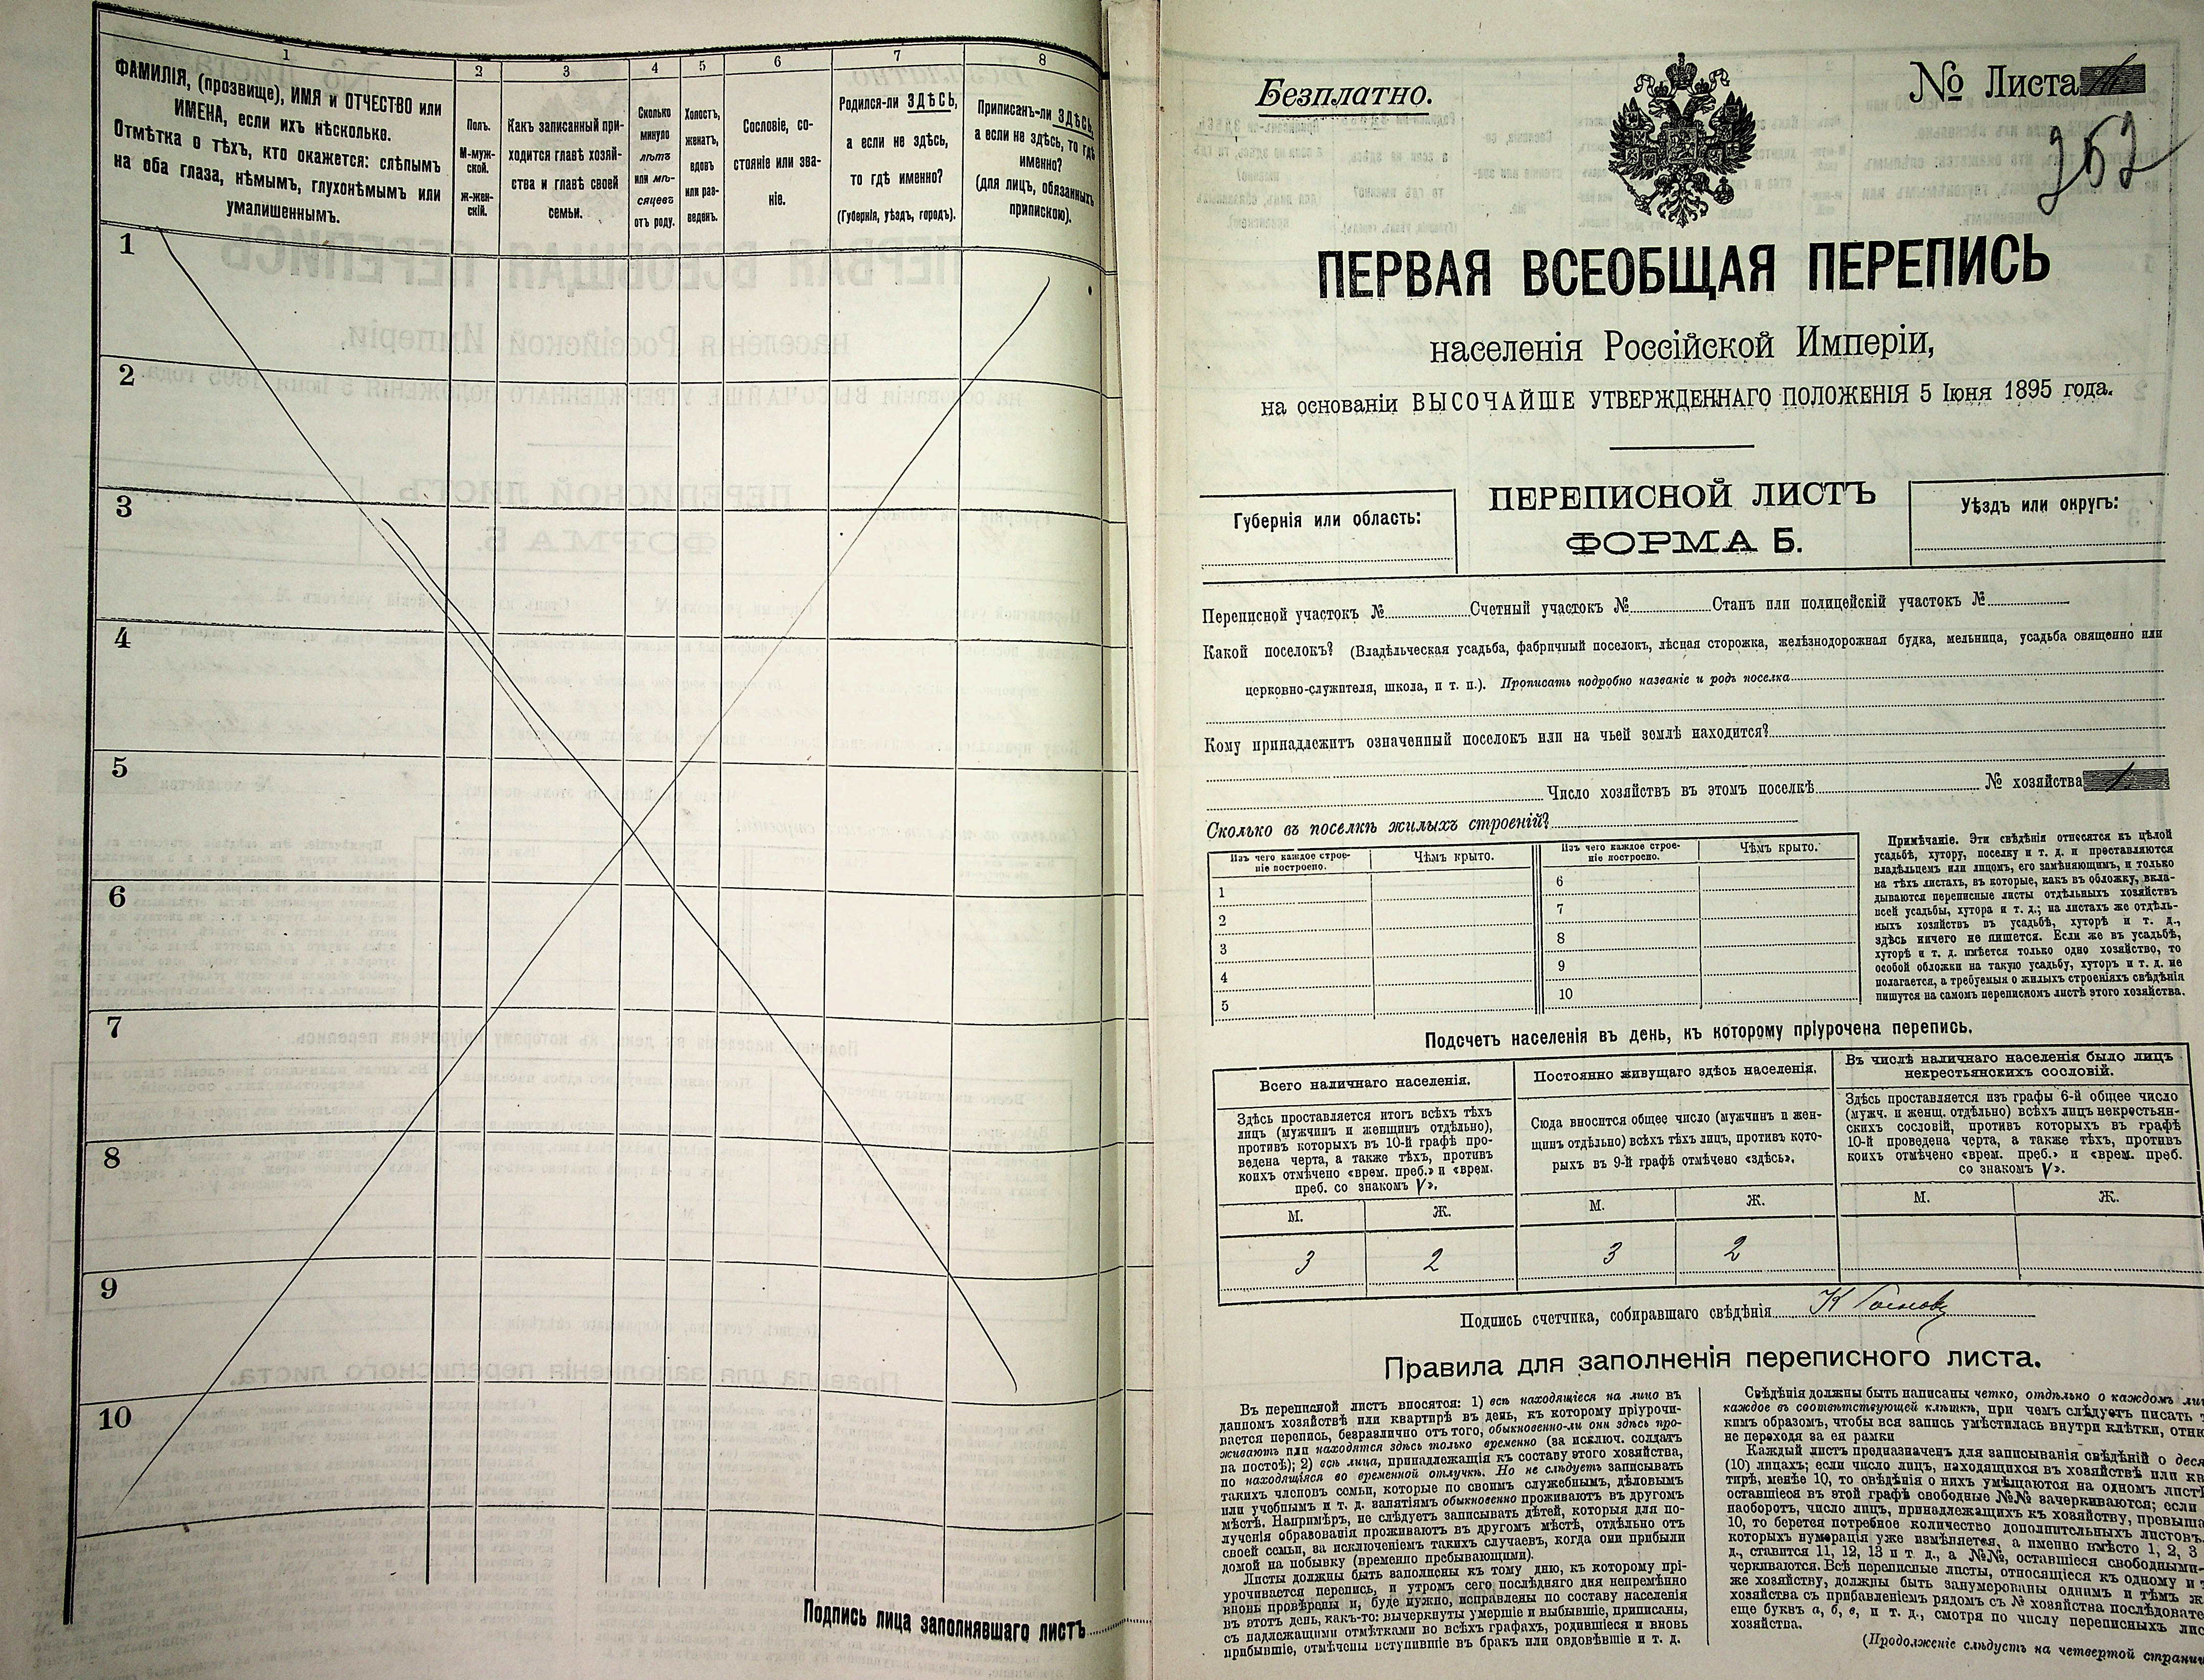 1
2
3
4
5
6
7
8
ФАМИЛІЯ, (прозвище), ИМЯ и ОТЧЕСТВО или
ИМЕНА, если ихъ нѣсколько.
Отмѣтка о тѣхъ, кто окажется: слѣпымъ
на оба глаза, нѣмымъ, глухонѣмымъ или
умалишеннымъ.
Полъ.
М-муж-
ской.
Ж-жен-
скій.
Какъ записанный при-
ходится главѣ хозяй-
ства и главѣ своей
семьи.
Сколько
минуло
лѣтъ
или мѣ-
сяцевъ
отъ роду.
Холостъ,
женатъ,
вдовъ
или раз-
веденъ.
Сословіе, со-
стояніе или зва-
ніе.
Родился-ли ЗДѢСЬ,
а если не здѣсь,
то гдѣ именно?
(Губернія, уѣздъ, городъ).
Приписанъ-ли ЗДѢСЬ,
а если не здѣсь, то гдѣ
именно?
(для лицъ, обязанныхъ
припискою).
1
2
3
4
5
6
7
8
9
10
Подпись лица заполнявшаго листъ
Безплатно.
№ Листа
262
ПЕРВАЯ ВСЕОБЩАЯ ПЕРЕПИСЬ
населенія Россійской Имперіи,
на основаніи ВЫСОЧАЙШЕ УТВЕРЖДЕННАГО ПОЛОЖЕНІЯ 5 Іюня 1895 года.
Губернія или область:
ПЕРЕПИСНОЙ ЛИСТЪ
ФОРМА Б.
Уѣздъ или округъ:
Переписной участокъ № Счетный участокъ № Станъ или полицейскій участокъ №
Какой поселокъ? (Владѣльческая усадьба, фабричный поселокъ, лѣсная сторожка, желѣзнодорожная будка, мельница, усадьба овященно или
церковно-служителя, школа, и т. п.). Прописать подробно названіе и родъ поселка
Кому принадлежитъ означенный поселокъ или на чьей землѣ находится?
Число хозяйствъ въ этомъ поселкѣ № хозяйства 1
Сколько въ поселкѣ жилыхъ строеній?
Изъ чего каждое строе-
ніе построено.
Чѣмъ крыто.
Изъ чего каждое строе-
ніе построено.
Чѣмъ крыто.
1
2
3
4
5
6
7
8
9
10
Примѣчаніе. Эти свѣдѣнія относятся къ цѣлой
усадьбѣ, хутору, поселку и т. д. и проставляются
владѣльцемъ или лицомъ, его замѣняющимъ, и только
на тѣхъ листахъ, въ которые, какъ въ обложку, вкла-
дываются переписные листы отдѣльныхъ хозяйствъ
всей усадьбы, хутора и т. д.; на листахъ же отдѣль-
ныхъ хозяйствъ въ усадьбѣ, хуторѣ и т. д.,
здѣсь ничего не пишется. Если же въ усадьбѣ,
хуторѣ и т. д. имѣется только одно хозяйство, то
особой обложки на такую усадьбу, хуторъ и т. д. не
полагается, а требуемыя о жилыхъ строеніяхъ свѣдѣнія
пишутся на самомъ переписномъ листѣ этого хозяйства.
Подсчетъ населенія въ день, къ которому пріурочена перепись.
Всего наличнаго населенія.
Здѣсь проставляется итогъ всѣхъ тѣхъ
лицъ (мужчинъ и женщинъ отдѣльно),
противъ которыхъ въ 10-й графѣ про-
ведена черта, а также тѣхъ, противъ
коихъ отмѣчено «врем. преб.» и «врем.
преб. со знакомъ V».
Постоянно живущаго здѣсь населенія.
Сюда вносится общее число (мужчинъ и жен-
щинъ отдѣльно) всѣхъ тѣхъ лицъ, противъ кото-
рыхъ въ 9-й графѣ отмѣчено «здѣсь».
Въ числѣ наличнаго населенія было лицъ
некрестьянскихъ сословій.
Здѣсь проставляется изъ графы 6-й общее число
(мужч. и женщ. отдѣльно) всѣхъ лицъ некрестьян-
скихъ сословій, противъ которыхъ въ графѣ
10-й проведена черта, а также тѣхъ, противъ
коихъ отмѣчено «врем. преб.» и «врем. преб.
со знакомъ V».
М. Ж. М. Ж. М. Ж.
3 2 3 2
Подпись счетчика, собиравшаго свѣдѣнія
Правила для заполненія переписного листа.
Въ переписной листъ вносятся: 1) всѣ находящіеся на лицо въ
данномъ хозяйствѣ или квартирѣ въ день, къ которому пріурочи-
вается перепись, безразлично отъ того, обыкновенно-ли они здѣсь про-
живаютъ или находятся здѣсь только временно (за исключ. солдатъ
на постоѣ); 2) всѣ лица, принадлежащія къ составу этого хозяйства,
но находящіяся во временной отлучкѣ. Но не слѣдуетъ записывать
такихъ членовъ семьи, которые по своимъ служебнымъ, дѣловымъ
или учебнымъ и т. д. занятіямъ обыкновенно проживаютъ въ другомъ
мѣстѣ. Напримѣръ, не слѣдуетъ записывать дѣтей, которыя для по-
лученія образованія проживаютъ въ другомъ мѣстѣ, отдѣльно отъ
своей семьи, за исключеніемъ такихъ случаевъ, когда они прибыли
домой на побывку (временно пребывающими).
Листы должны быть заполнены къ тому дню, къ которому прі-
урочивается перепись, и утромъ сего послѣдняго дня непремѣнно
вновь провѣрены и, буде нужно, исправлены по составу населенія
въ этотъ день, какъ-то: вычеркнуты умершіе и выбывшіе, приписаны,
съ надлежащими отмѣтками во всѣхъ графахъ, родившіеся и вновь
прибывшіе, отмѣчены вступившіе въ бракъ или овдовѣвшіе и т. д.
Свѣдѣнія должны быть написаны четко, отдѣльно о каждомъ
каждое въ соотвѣтствующей клѣткѣ, при чемъ слѣдуетъ писать
кимъ образомъ, чтобы вся запись умѣстилась внутри клѣтки,
не переходя за ея рамки
Каждый листъ предназначенъ для записыванія свѣдѣній о
(10) лицахъ; если число лицъ, находящихся въ хозяйствѣ или
тирѣ, менѣе 10, то овѣдѣнія о нихъ умѣщаются на одномъ
оставшіеся въ этой графѣ свободные №№ зачеркиваются; если
наоборотъ, число лицъ, принадлежащихъ къ хозяйству,
10, то берется потребное количество дополнительныхъ листовъ
которыхъ нумерація уже измѣняется, а именно вмѣсто 1, 2, 3
д., ставится 11, 12, 13 и т. д., а №№, оставшіеся свободными
черкиваются. Всѣ переписные листы, относящіеся къ одному и
же хозяйству, должны быть занумерованы однимъ и тѣмъ
хозяйства съ прибавленіемъ рядомъ съ № хозяйства
еще буквъ а, б, в, и т. д., смотря по числу переписныхъ
хозяйства.
(Продолженіе слѣдуетъ на четвертой